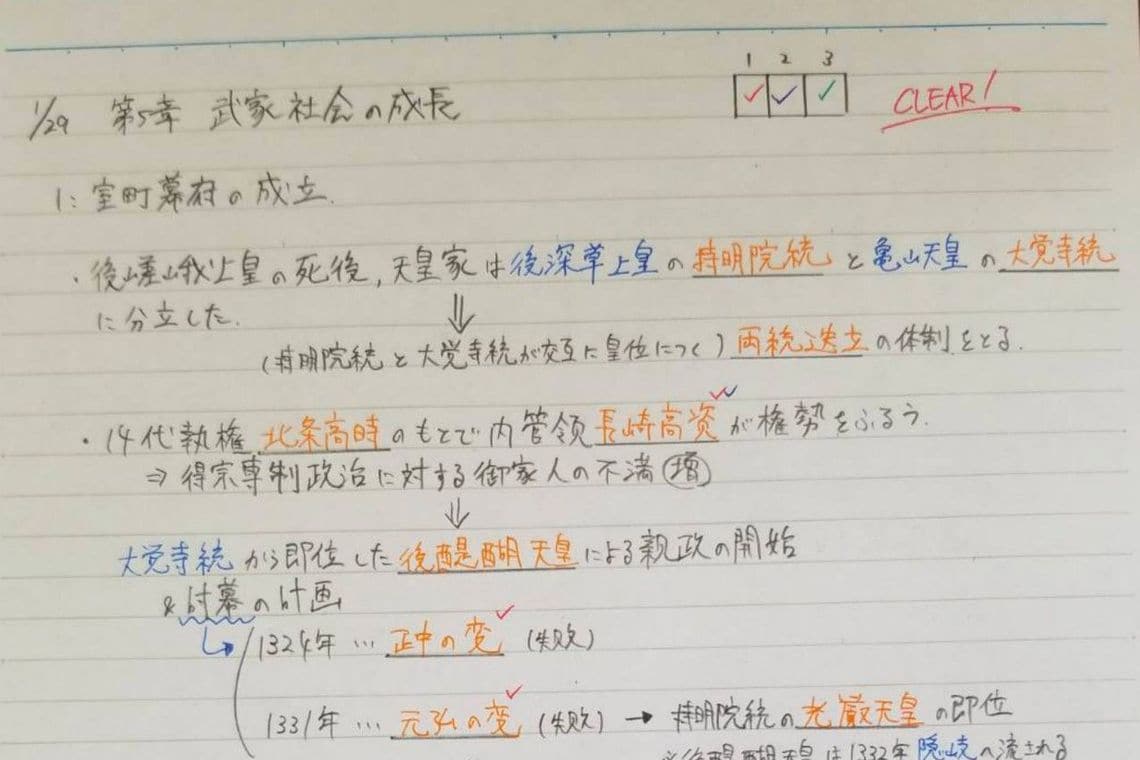 1 2 3
CLEAR!
1/29 第5章 武家社会の成長
1: 室町幕府の成立.
・後嵯峨上皇の死後,天皇家は後深草上皇の持明院統と亀山天皇の大覚寺統
に分立した.
⇓
(持明院統と大覚寺統が交互に皇位につく)両統迭立の体制をとる.
・14代執権 北条高時のもとで内管領長崎高資が権勢をふるう.
⇒ 得宗専制政治に対する御家人の不満 増
⇓
大覚寺統から即位した後醍醐天皇による親政の開始
& 討幕の計画
1324年 … 正中の変 (失敗)
1331年 … 元弘の変 (失敗) → 持明院統の光厳天皇の即位
※後醍醐天皇は1332年隠岐へ流される